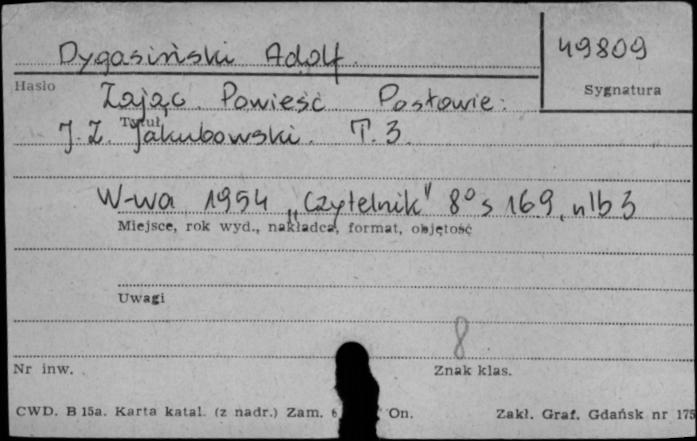 Dygasiński Adolf.
49809
Hasło
Sygnatura
Zając. Powieść Posłowie:
Tytuł
J. Z. Jakubowski. T. 3.
W-wa 1954 „Czytelnik" 8° s 169, nlb 3
Miejsce, rok wyd., nakładca, format, objętość
Uwagi
8
Nr inw.
Znak klas.
CWD. B 15a. Karta katal. (z nadr.) Zam. On.
Zakł. Graf. Gdańsk nr 175